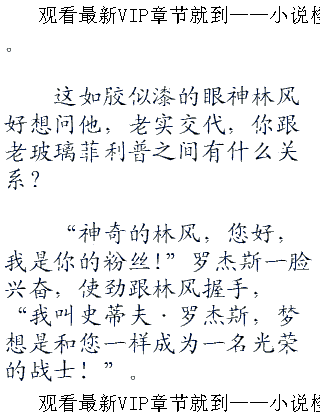 观看最新VIP章节就到——小说
。
这如胶似漆的眼神林风
好想问他，老实交代，你跟
老玻璃菲利普之间有什么关
系？
“神奇的林风，您好，
我是你的粉丝！”罗杰斯一脸
兴奋，使劲跟林风握手，
“我叫史蒂夫·罗杰斯，梦
想是和您一样成为一名光荣
的战士！”。
观看最新VIP章节就到——小说